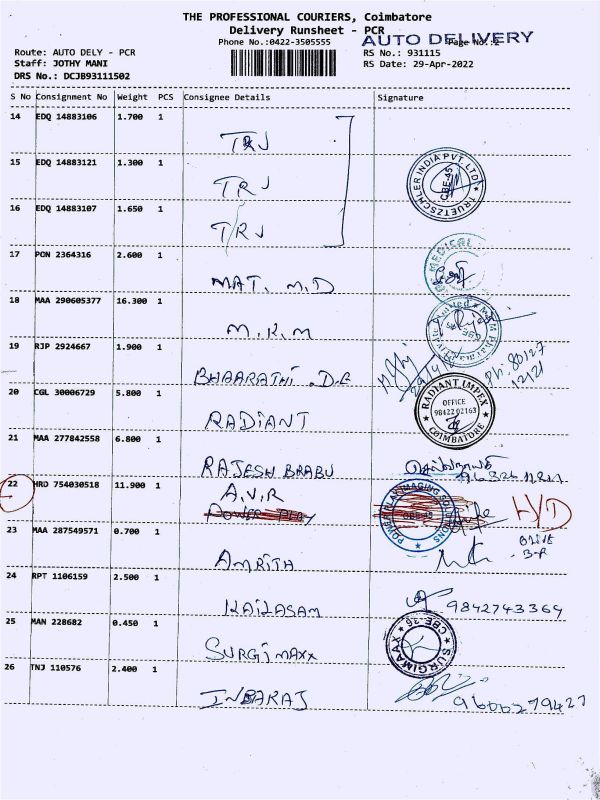 THE PROFESSIONAL COURIERS, Coimbatore
Delivery Runsheet - PCR
Phone No.:0422-3505555
AUTO DELIVERY
Page No.:2
Route: AUTO DELY - PCR
RS No.: 931115
Staff: JOTHY MANI
RS Date: 29-Apr-2022
DRS No.: DCJB93111502
S No Consignment No Weight PCS Consignee Details Signature
14 EDQ 14883106 1.700 1
TRJ
15 EDQ 14883121 1.300 1
TRJ
TRUETZSCHLER INDIA PVT. LTD.
CBE-45
16 EDQ 14883107 1.650 1
TRJ
17 PON 2364316 2.600 1
MAT. M.D
MEDICAL
18 MAA 290605377 16.300 1
M.K.M
19 RJP 2924667 1.900 1
BHAARATHI .D.E
Ph: 80127
20 CGL 30006729 5.800 1
RADIANT
RADIANT IMPEX
OFFICE
98422 02163
COIMBATORE
21 MAA 277842558 6.800 1
RAJESH BRABU
22 HRD 754030518 11.900 1
A.V.R
POWER PLAY
POWER PLAY IMAGING SOLUTIONS
H/D
23 MAA 287549571 0.700 1
AMRITA
24 RPT 1106159 2.500 1
KAILASAM
9842743364
25 MAN 228682 0.450 1
SURGIMAXX
SURGIMAXX
CBE-36
26 TNJ 110576 2.400 1
INBARAJ
9600279427